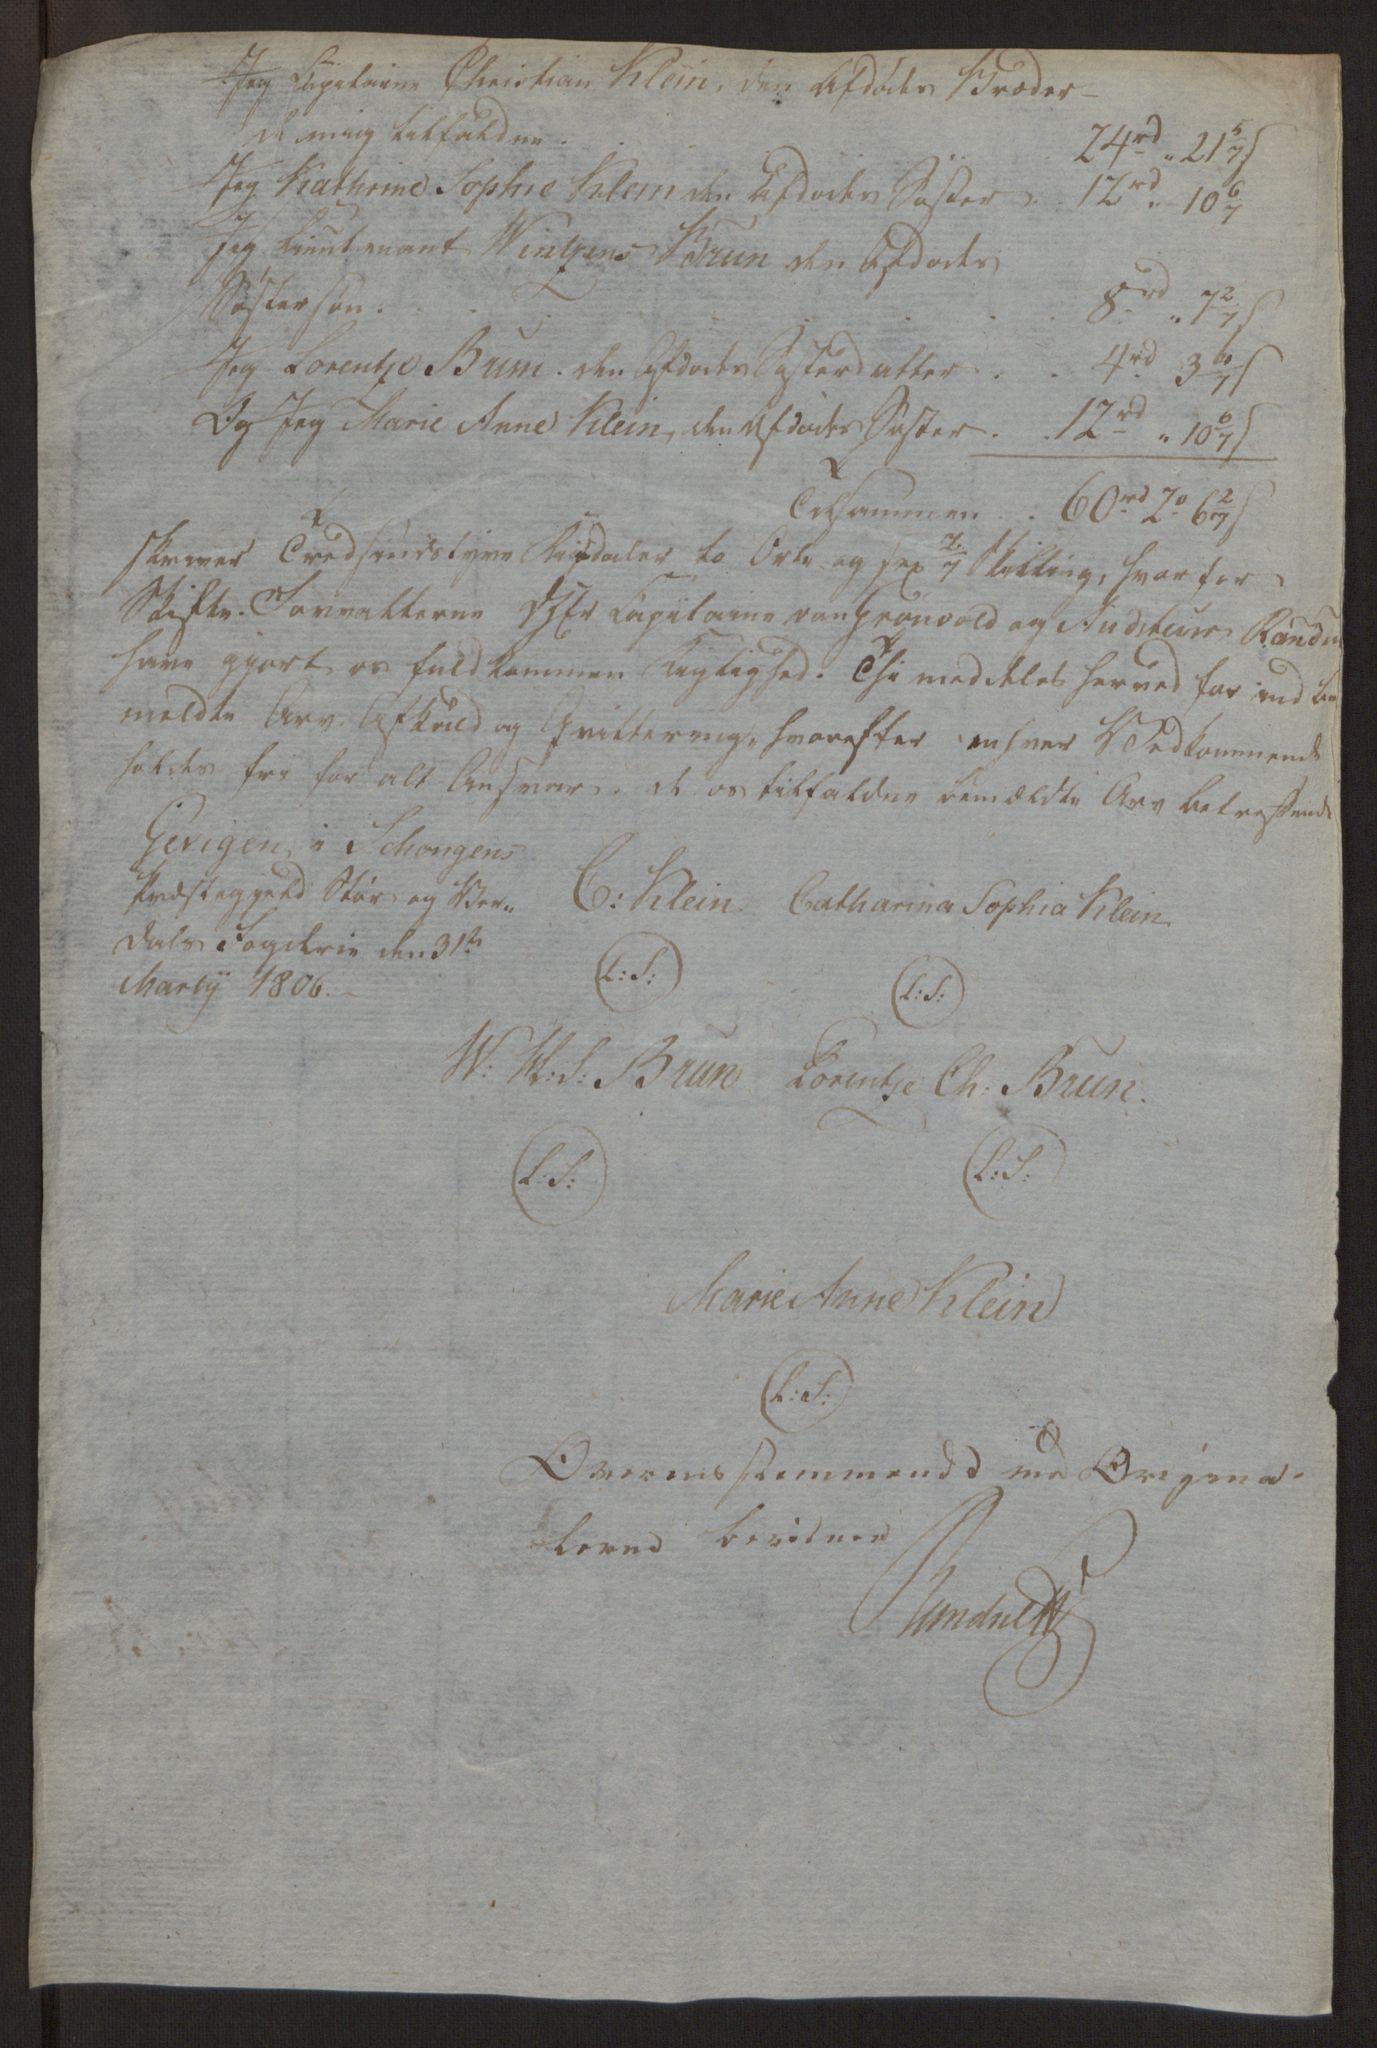 Jeg Capitaine Christian Klein, den Afdødes Broder
de mig tilfaldne . . 24rd „ 21 5/7 s
Jeg Kathrine Sophie Klein den Afdødes Søster . . 12rd „ 10 6/7
Jeg Lieutenant Wintzens Brun den Afdødes
Søstersøn . . . 8rd „ 7 2/7 s
Jeg Lorentze Brun . den Afdødes Søsterdatter . . 4rd 3 6/7 s
Og Jeg Marie Anne Klein, den Afdødes Søster . . 12rd „ 10 6/7 s
Tilsammen . . 60rd 2o 6 2/7 s
skriver Tredsindstyve Rigsdaler to Ort og sex 2/7 Skilling, hvorfor
Skifte-Forvalterne Hr Capitaine von Grønvold og Auditeur Randu
have gjort os fuldkommen Rigtighed. Thi meddeles herved for ind be
meldte Arv Afkald og Qvittering, hvorefter enhver Vedkommende
holdes fri for alt Ansvar . de os tilfaldne bemeldte Arv betreffende
Gerigen i Schongens
Præstegjeld Stør og Ver„
dals Fogderie den 31te
Martij 1806.
C: Klein. Catharina Sophia Klein
(L:S:) (L:S:)
W: W:S: Brun Lorentze Ch: Brun.
(L:S:) (L:S:)
Marie Anne Klein
(L:S:)
Overensstemmende med Origina-
lerne bevidner
Randulff